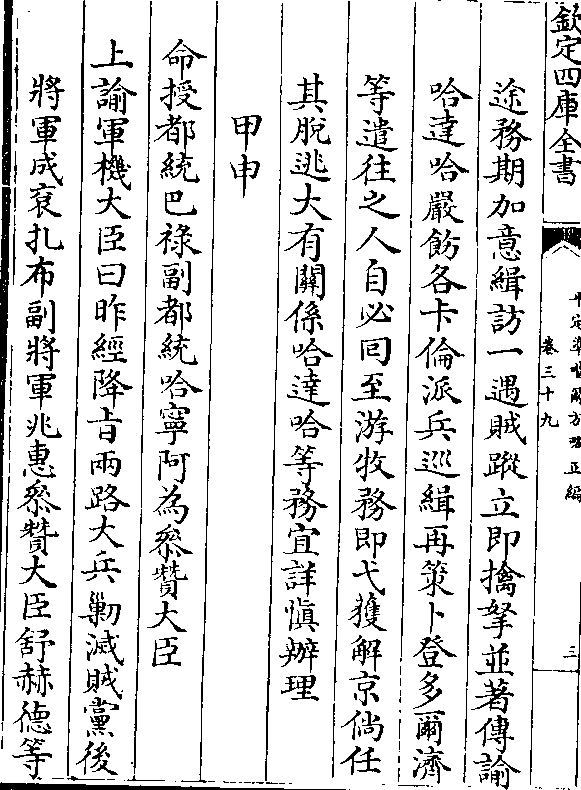 欽定四庫全書
平定準噶爾方略正編
卷三十九
三
途務期加意緝訪一遇賊蹤立即擒拏並著傳諭
哈達哈嚴飭各卡倫派兵巡緝再策卜登多爾濟
等遣往之人自必囘至游牧務即弋獲解京倘任
其脫逃大有關係哈達哈等務宜詳慎辦理
甲申
命授都統巴祿副都統哈寧阿為叅贊大臣
上諭軍機大臣曰昨經降㫖兩路大兵勦滅賊黨後
將軍成袞扎布副將軍兆惠叅贊大臣舒赫德等